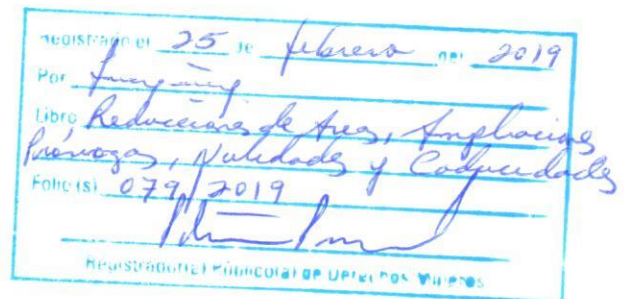 Registrado el 25 de febrero del 2019
Por
Libro Reducciones de Areas, Ampliaciones
Prórrogas, Nulidades y Caducidades
Folio (s) 079/2019
Registrador(a) Público(a) de Derechos Mineros